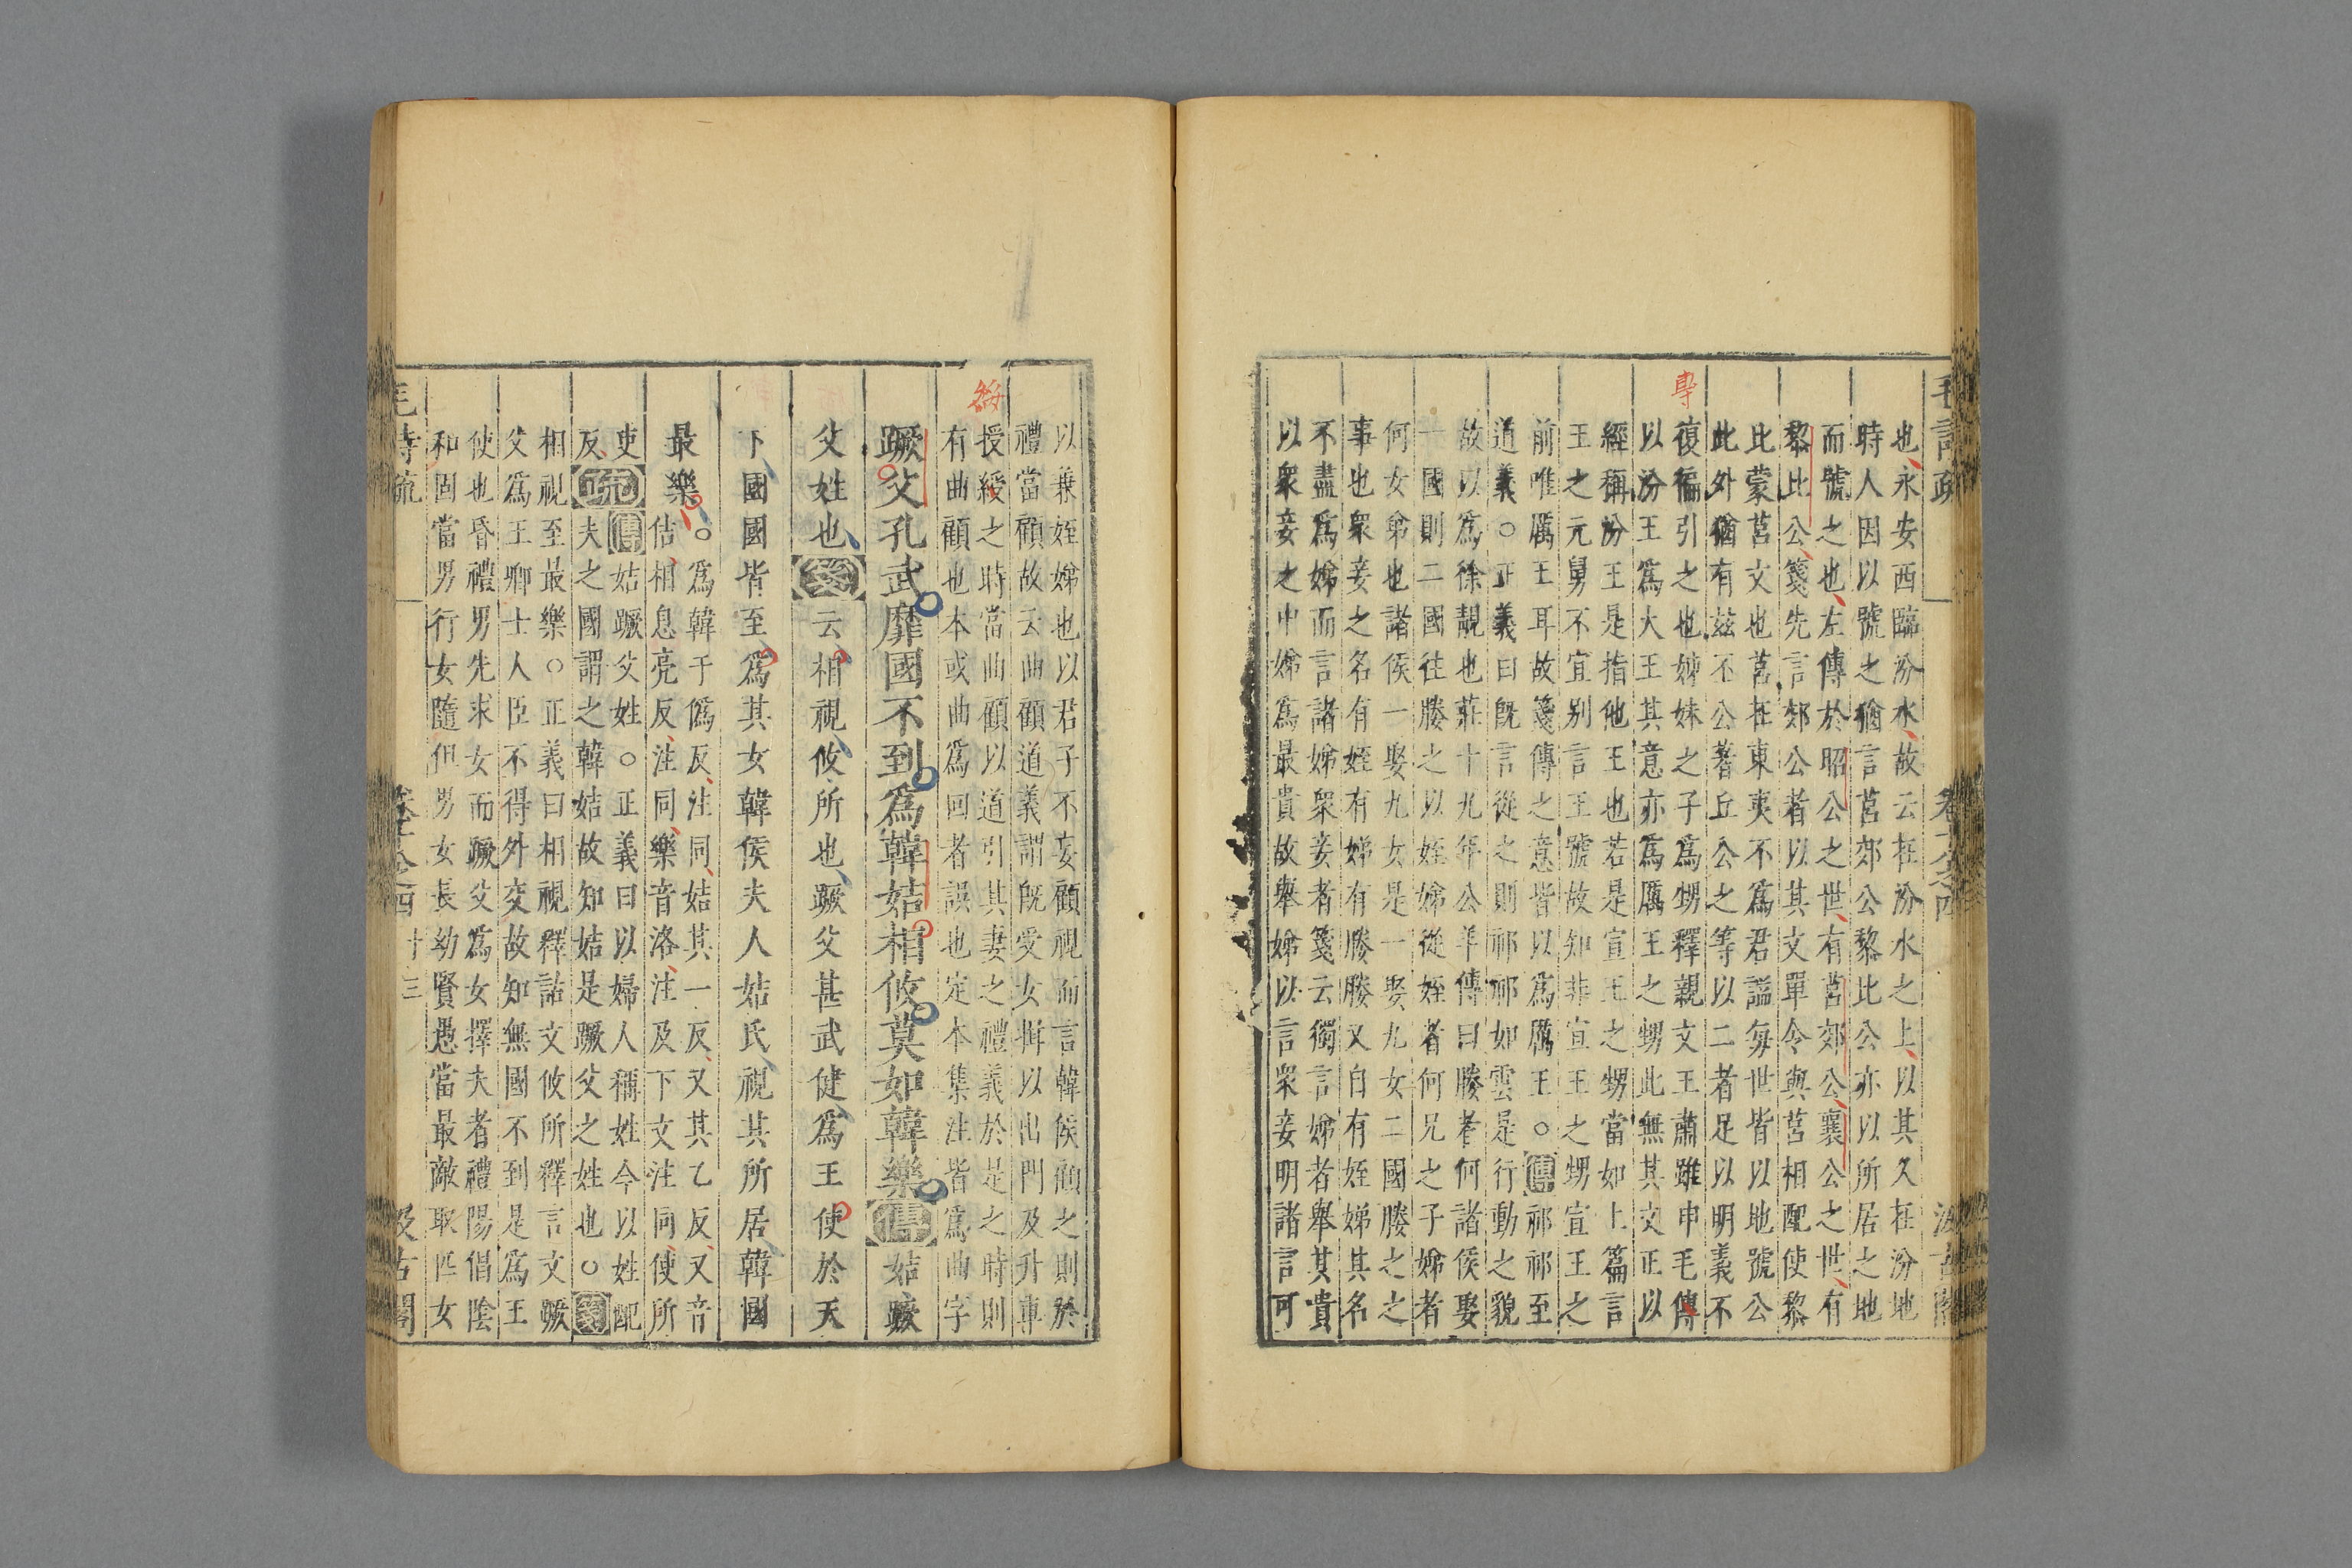 也永安西臨汾水故云在汾水之上以其久在汾地
時人因以號之猶言莒郊公黎比公亦以所居之地
而號之也左傳於昭公之世有莒郊公襄公之世有
黎比公箋先言郊公者以其文單令與莒相配使黎
比蒙莒文也莒在東夷不爲君謚每世皆以地號公
此外猶有茲丕公著丘公之等以二者足以明義不
復徧引之也姊妹之子爲甥釋親文王肅雖申毛傳
專
以汾王爲大王其意亦爲厲王之甥此無其文正以
經稱汾王是指他王也若是宣王之甥當如上篇言
王之元舅不宜別言王號故知非宣王之甥宣王之
前唯厲王耳故箋傳之意皆以爲厲王○傳祁祁至
道義○正義曰旣言從之則祁祁如雲是行動之貌
故以爲徐靚也莊十九年公羊傳曰媵者何諸侯娶
一國則二國往媵之以姪娣從姪者何兄之子娣者
何女弟也諸侯一娶九女是一娶九女二國媵之之
事也衆妾之名有姪有娣有媵媵又自有姪娣其名
不盡爲娣而言諸娣衆妾者箋云獨言娣者舉其貴
以衆妾之中娣爲最貴故舉娣以言衆妾明諸言可
以兼姪娣也以君子不妄顧視而言韓侯顧之則於
禮當顧故云曲顧道義謂旣受女揖以出門及升車
授綏之時當曲顧以道引其妻之禮義於是之時則
綏
有曲顧也本或曲爲回者誤也定本集注皆爲曲字
蹶父孔武靡國不到爲韓姞相攸莫如韓樂傳姞蹶
父姓也箋云相視攸所也蹶父甚武健爲王使於天
下國國皆至爲其女韓侯夫人姞氏視其所居韓國
最樂○爲韓于僞反注同姞其一反又其乙反又音
佶相息亮反注同樂音洛注及下文注同使所
吏反疏傳姞蹶父姓○正義曰以婦人稱姓今以姓配
夫之國謂之韓姞故知姞是蹶父之姓也○箋
相視至最樂○正義曰相視釋詁文攸所釋言文蹶
父爲王卿士人臣不得外交故知無國不到是爲王
使也昏禮男先求女而蹶父爲女擇夫者禮陽倡陰
和固當男行女隨但男女長幼賢愚當最敵取匹女
毛詩疏
卷十八之四
十三
汲古閣